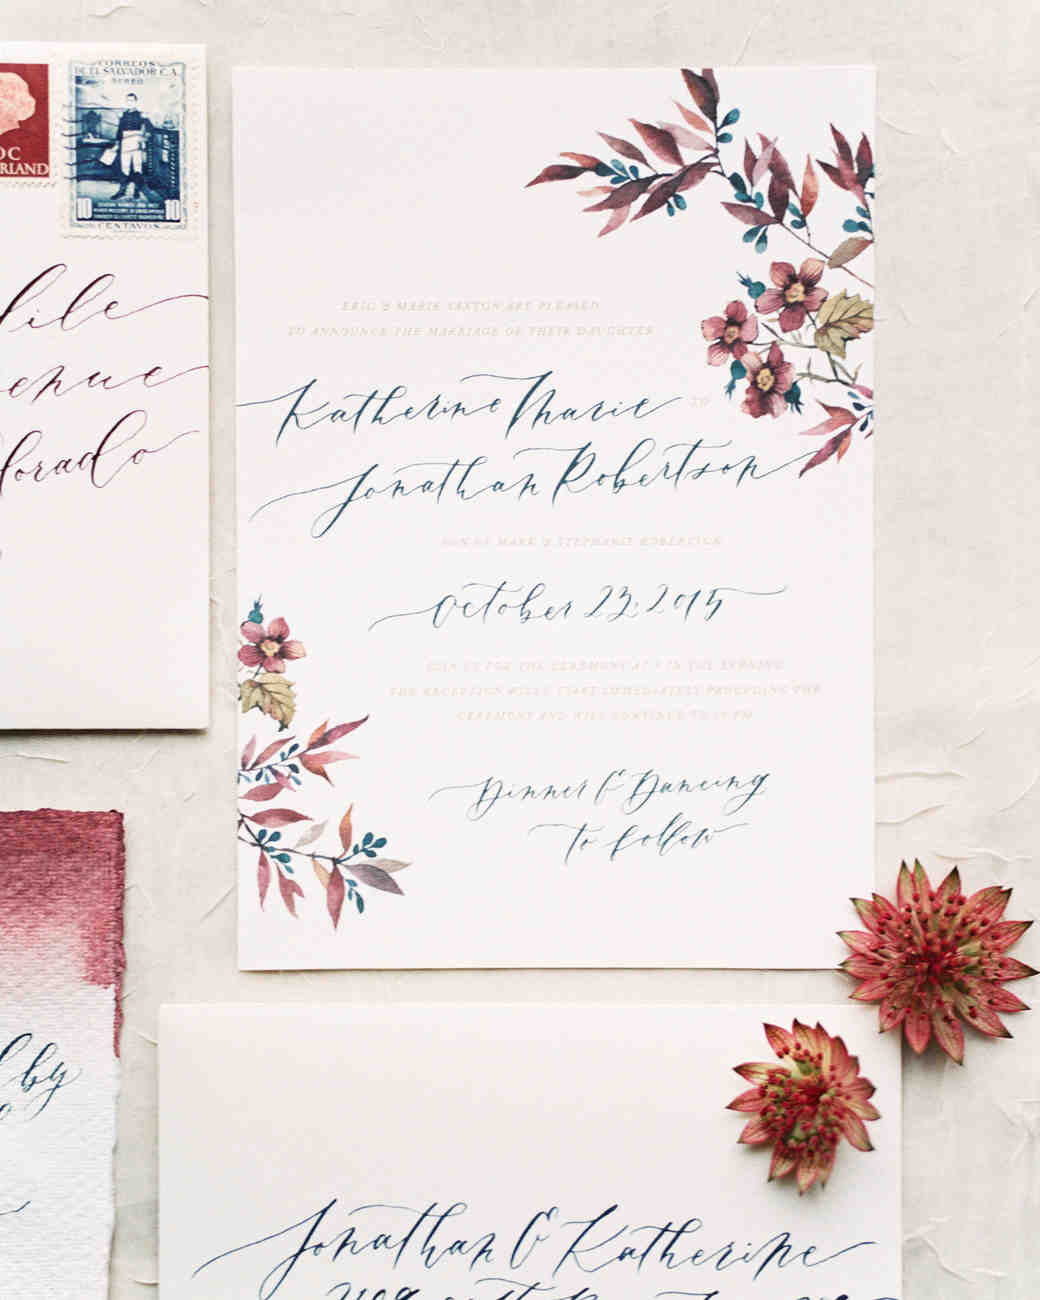 CORREOS
DE EL SALVADOR C.A.
AEREO
10 10
CENTAVOS
ERIC & MARIE SEXTON ARE PLEASED
TO ANNOUNCE THE MARRIAGE OF THEIR DAUGHTER
Katherine Marie TO
Jonathan Robertson
SON OF MARK & STEPHANIE ROBERTSON
October 23, 2015
JOIN US FOR THE CEREMONY AT IN THE EVENING
THE RECEPTION WILL START IMMEDIATELY THE
CEREMONY AND WILL CONTINUE TO PM
Dinner & Dancing
to follow
Jonathan & Katherine